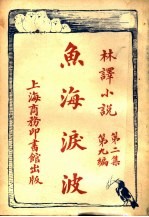 林譯小說
第二集
第九編
魚海淚波
上海商務印書館出版